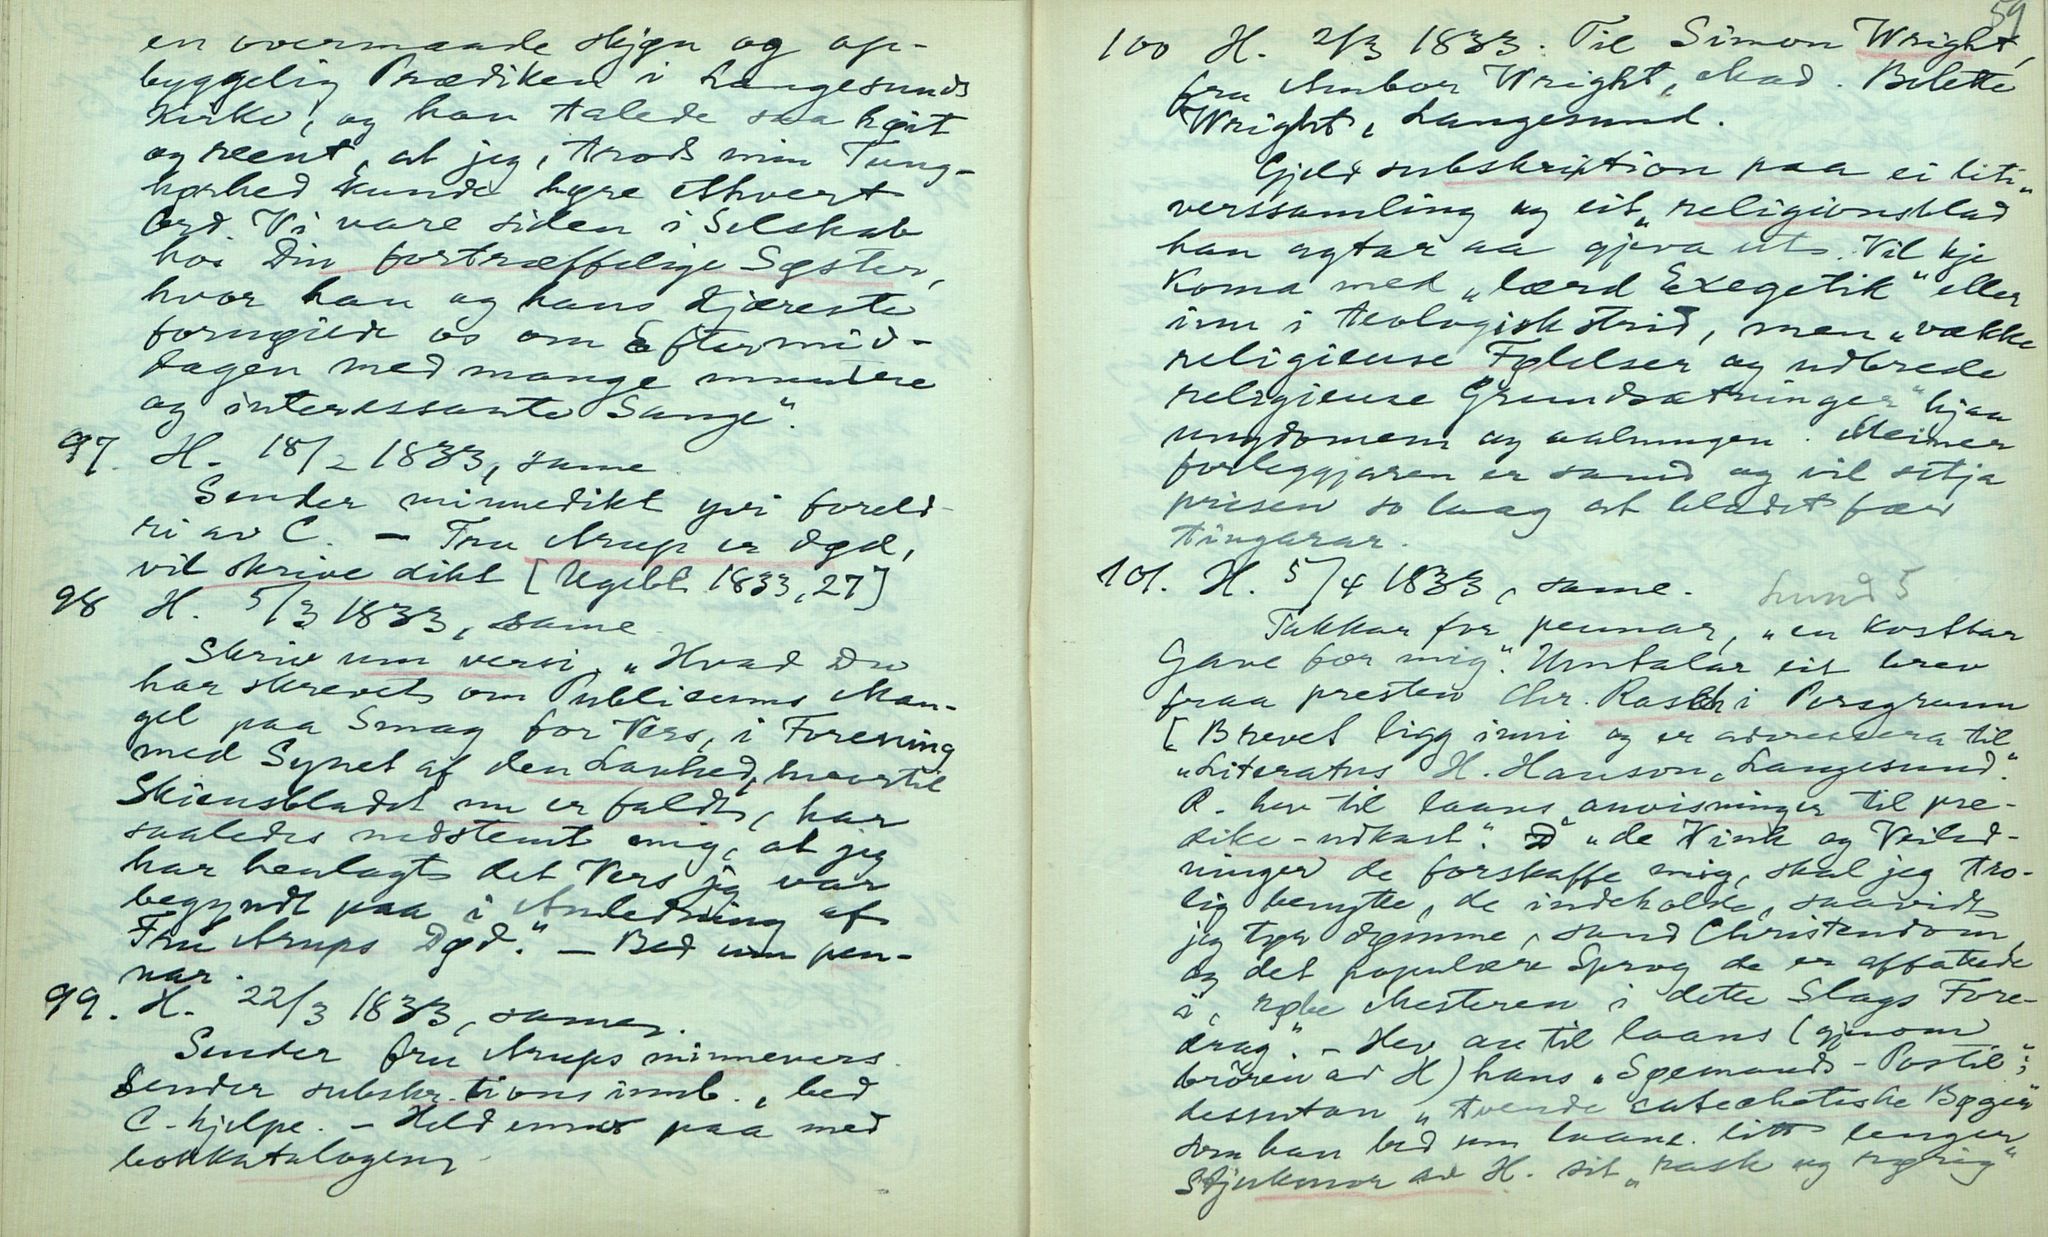 en overmaade skjøn og op-
byggelig Prædiken i Langesunds
Kirke, og han talede saa høit
og reent, at jeg, trods min Tung-
hørhed kunde høre ethvert
Ord. Vi vare siden i Selskab
hos Din fortræffelige Søster,
hvor han og hans Kjæreste
fornøiede os om Eftermid-
dagen med mange muntere
og interessante Sange".
97. H. 18/2 1833, same.
Sender minnedikt yvi foreld-
ri av C. — Fru Arup er død,
vil skrive dikt [Ugebl. 1833, 27]
98 H. 5/3 1833, same
Skriv um versi. „Hvad Du
har skrevet om Publicums Man-
gel paa Smag for Vers, i Forening
med Synet af den Lavhed, hvortil
Skiensbladet nu er faldt, har
saaledes nedstemt mig, at jeg
har henlagt det Vers jeg var
begyndt paa i Anledning af
Fru Arups Død." — Bed um pen-
nar.
99. H. 22/3 1833, same.
Sender fru Arups minnevers.
Sender subskr.tionsinnb., bed
C. hjelpe. — Held paa med
bokkatalogen
59
100 H. 2/3 1833. Til Simon Wright,
fru Anbor Wright, Mad. Bolette
Wright, Langesund.
Gjeld subskription paa ei liti
verssamling og eit „religionsblad"
han agtar aa gjeva ut. Vil kje
koma med „lærd Exegetik" eller
inn i teologisk strid, men „vække
religieuse Følelser og udbrede
religieuse Grundsætninger" hjaa
ungdomen og aalmugen. Meiner
forleggjaren er samd og vil setja
prisen so laag at bladet fær
tingarar.
101. H. 5/4 1833, same. Lund 5
Takkar for pennar, „en kostbar
Gave for mig". Umtalar eit brev
fraa presten Chr. Rasch i Porsgrunn
[Brevet ligg inni og er adressera til
„Literatus H. Hanson, Langesund".
R. hev til laans anvisninger til pre-
dike-udkast". „de Vink og Veiled-
ninger de forskaffe mig, skal jeg tro-
lig benytte, de indeholde, saavidt
jeg tør dømme, sand Christendom,
og det populære Sprog de er affattede
i, røbe Mesteren i dette Slags Fore-
drag." — Hev au til laans (gjenom
bróren av H) hans „Søemands-Postil";
dessutan „tvende catechetiske Bøger"
som han bed um laane litt lenger
Stjukmor av H. sit „rask og rørig"